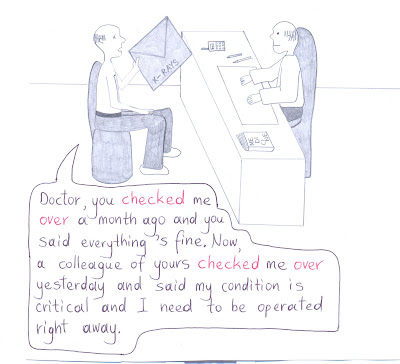 X-RAYS
MEDICINE
Doctor, you checked me
over a month ago and you
said everything's fine. Now,
a colleague of yours checked me over
yesterday and said my condition is
critical and I need to be operated
right away.